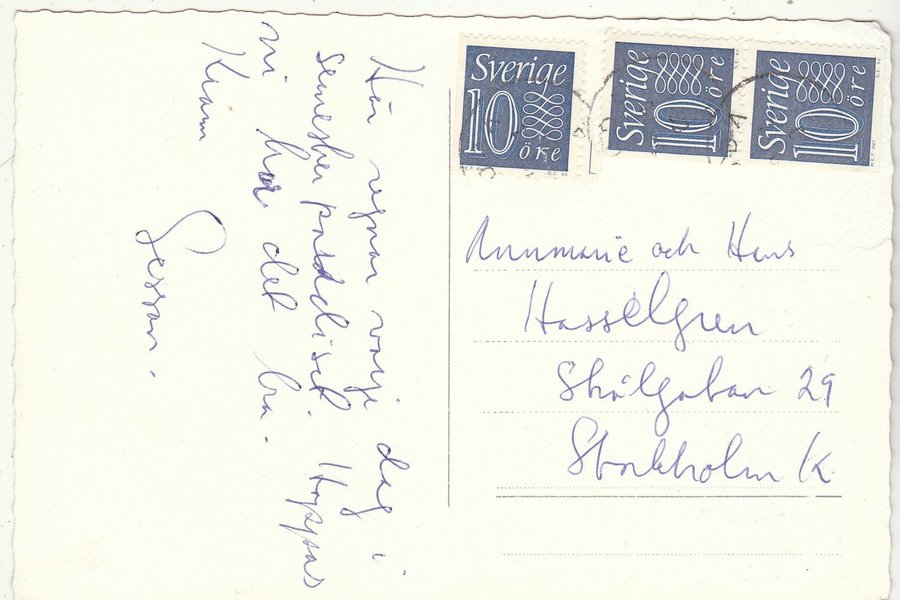 Här regnar varje dag i
semesterparadiset. Hoppas
ni har det bra.
Kram
Sessan.
Sverige
10
öre
Sverige
10 öre
Sverige
10 öre
Annmarie och Hans
Hasselgren
Skålgatan 29
Stockholm K